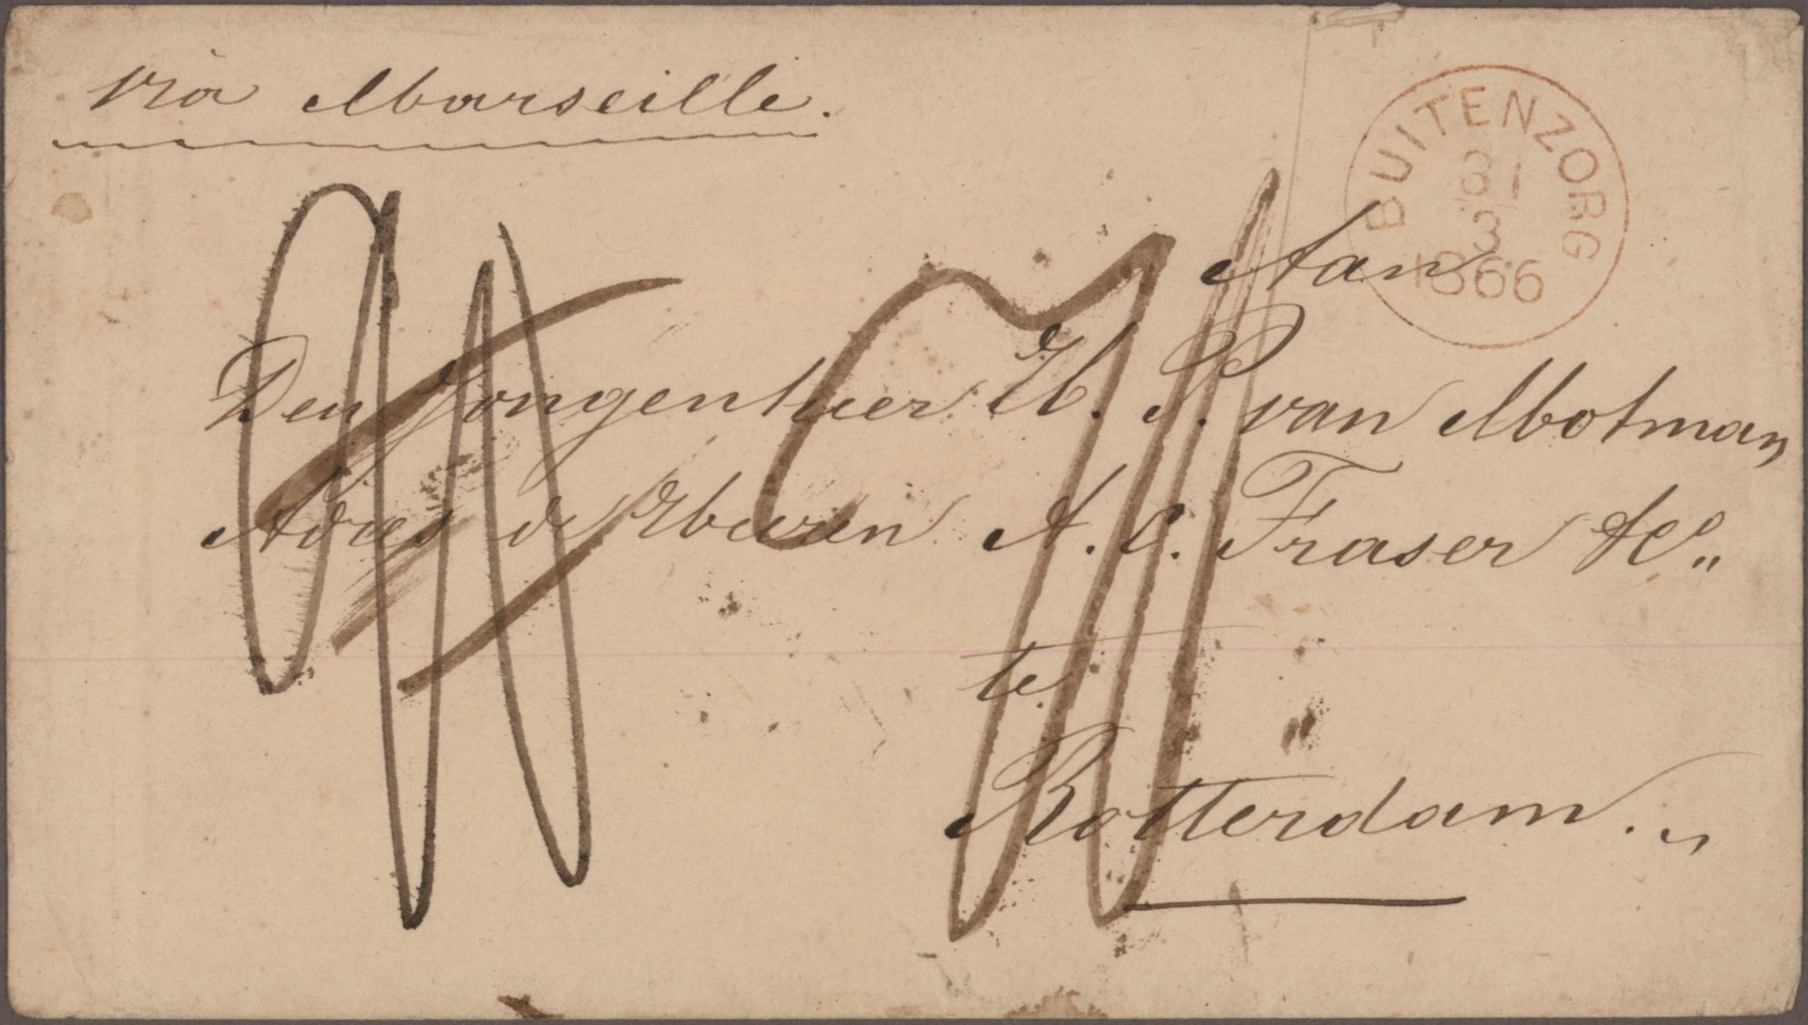 via Marseille.
BUITENZORG
31
3
1866
Aan
Den Jongenheer H. P. van Motman
Adres de Heeren A. C. Fraser & Co.
te
Rotterdam.